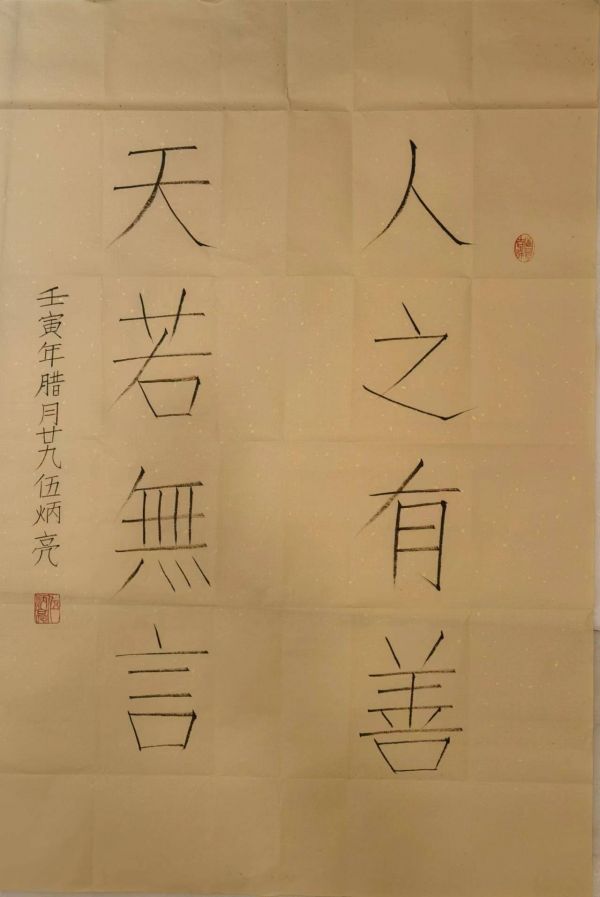 人之有善
天若無言
壬寅年腊月廿九伍炳亮